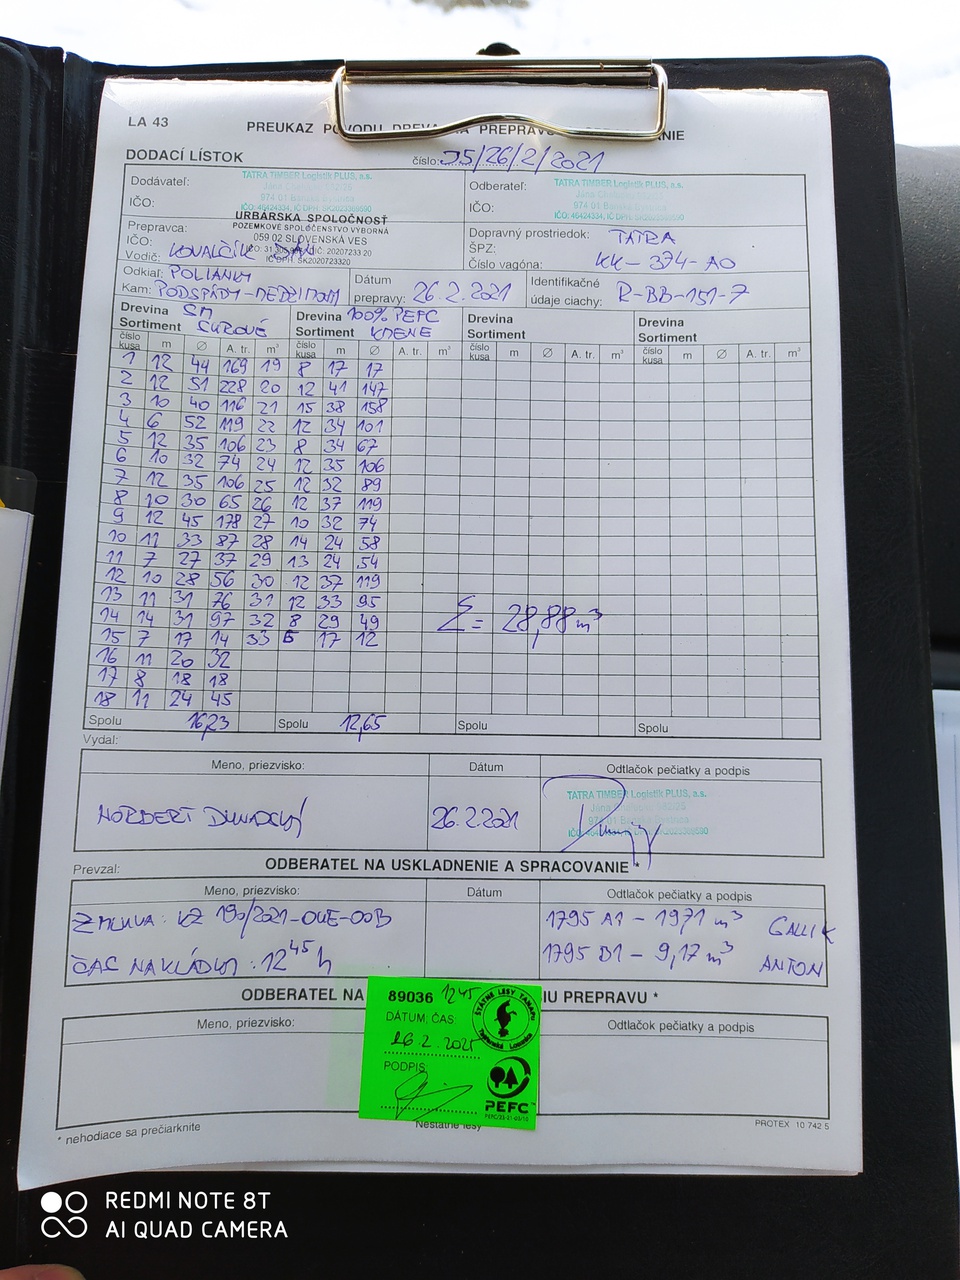 LA 43
PREUKAZ POVODU DREVA NA PREPRAVU
DODACÍ LÍSTOK
číslo: 55/26/2/2021
Dodávateľ:
TATRA TIMBER Logistik PLUS, a.s.
974 01 Banská Bystrica
IČO: 46424334, IČ DPH: SK2023369590
IČO:
URBÁRSKA SPOLOČNOSŤ
POZEMKOVÉ SPOLOČENSTVO VÝBORNÁ
059 02 SLOVENSKÁ VES
IČ DPH: SK2020723320
Prepravca:
IČO:
Vodič: KOVALČÍK JÁN
Odberateľ:
TATRA TIMBER Logistik PLUS, a.s.
974 01 Banská Bystrica
IČO: 46424334, IČ DPH: SK2023369590
IČO:
Dopravný prostriedok: TATRA
ŠPZ:
Číslo vagóna: KK-374-AO
Odkiaľ: POLIANKY
Kam: PODSPÁDY-MEDZISKLAD
Dátum
prepravy: 26.2.2021
Identifikačné
údaje ciachy: R-BB-151-7
Drevina SM
Sortiment SUROVÉ
Drevina 100% PEFC
Sortiment KMENE
Drevina
Sortiment
Drevina
Sortiment
číslo kusa m ∅ A. tr. m³ číslo kusa m ∅ A. tr. m³ číslo kusa m ∅ A. tr. m³ číslo kusa m ∅ A. tr. m³
1 12 44 169 19 8 17 17
2 12 51 228 20 12 41 147
3 10 40 116 21 15 38 158
4 6 52 119 22 12 34 101
5 12 35 106 23 8 34 67
6 10 32 74 24 12 35 106
7 12 35 106 25 12 32 89
8 10 30 65 26 12 37 119
9 12 45 178 27 10 32 74
10 11 33 87 28 14 24 58
11 7 27 37 29 13 24 54
12 10 28 56 30 12 37 119
13 11 31 76 31 12 33 95
14 14 31 97 32 8 29 49
15 7 17 14 33 6 17 12
16 11 20 32
17 8 18 18
18 11 24 45
Σ = 28,88 m³
Spolu 16,23 Spolu 12,65 Spolu Spolu
Vydal:
Meno, priezvisko: Dátum Odtlačok pečiatky a podpis
NORBERT 26.2.2021
TATRA TIMBER Logistik PLUS, a.s.
974 01 Banská Bystrica
Prevzal:
ODBERATEĽ NA USKLADNENIE A SPRACOVANIE *
Meno, priezvisko: Dátum Odtlačok pečiatky a podpis
ZMLUVA: KZ 190/2021-OUE-OOB
1795 A1 - 19,71 m³ GALLIK
ČAS NAKLÁDKY: 12⁴⁵ h
1795 B1 - 9,17 m³ ANTON
ODBERATEĽ NA IU PREPRAVU *
Meno, priezvisko: Odtlačok pečiatky a podpis
89036 12 45
DÁTUM, ČAS
26.2.2021
PODPIS:
ŠTÁTNE LESY TANAPu
Tatranská Lomnica
PEFC
* nehodiace sa prečiarknite
Neštátne lesy
PROTEX 10 742 5
REDMI NOTE 8T
AI QUAD CAMERA